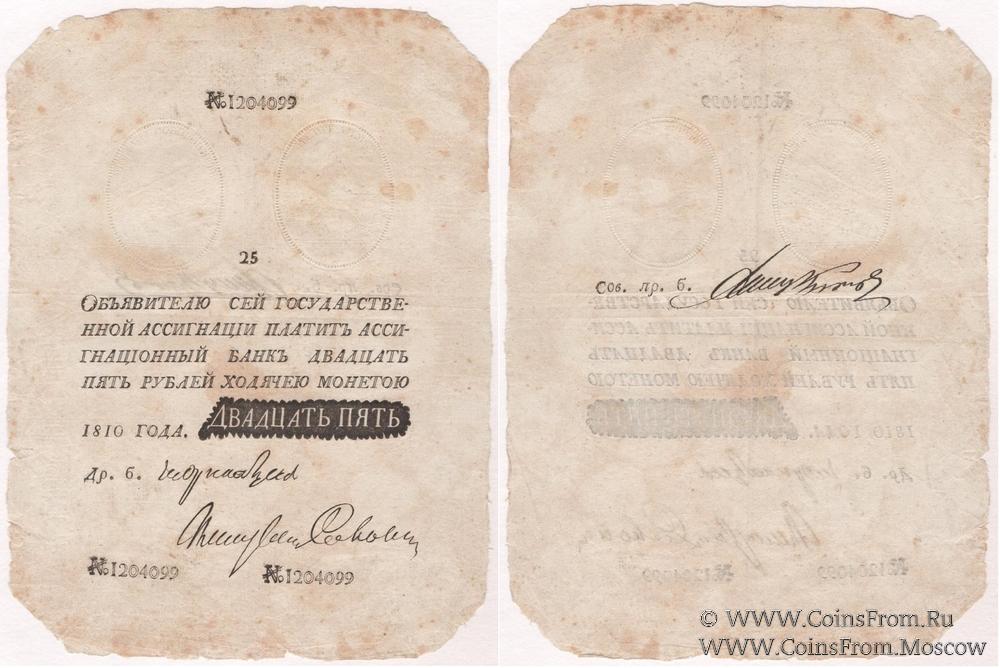 №1204099
25
Объявителю сей государстве-
нной ассигнацiи платитъ асси-
гнацiонный банкъ двадцать
пять рублей ходячею монетою
1810 года. Двадцать пять
Др. б.
№1204099 №1204099
Сов. пр. б.
© WWW.CoinsFrom.Ru
WWW.CoinsFrom.Moscow